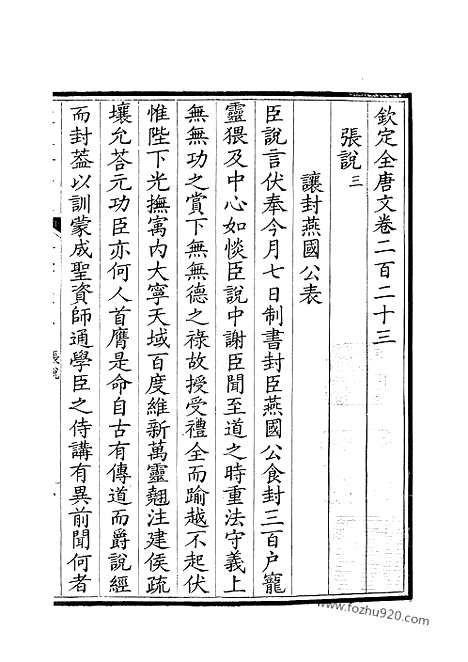 欽定全唐文卷二百二十三
張說三
讓封燕國公表
臣說言伏奉今月七日制書封臣燕國公食封三百户寵
靈猥及中心如惔臣說中謝臣聞至道之時重法守義上
無無功之賞下無無德之祿故授受禮全而踰越不起伏
惟陛下光撫寓内大寧天域百度維新萬靈翹注建侯疏
壤允荅元功臣亦何人首膺是命自古有傳道而爵說經
而封葢以訓蒙成聖資師通學臣之侍講有異前聞何者
張說
www.fozhu920.com